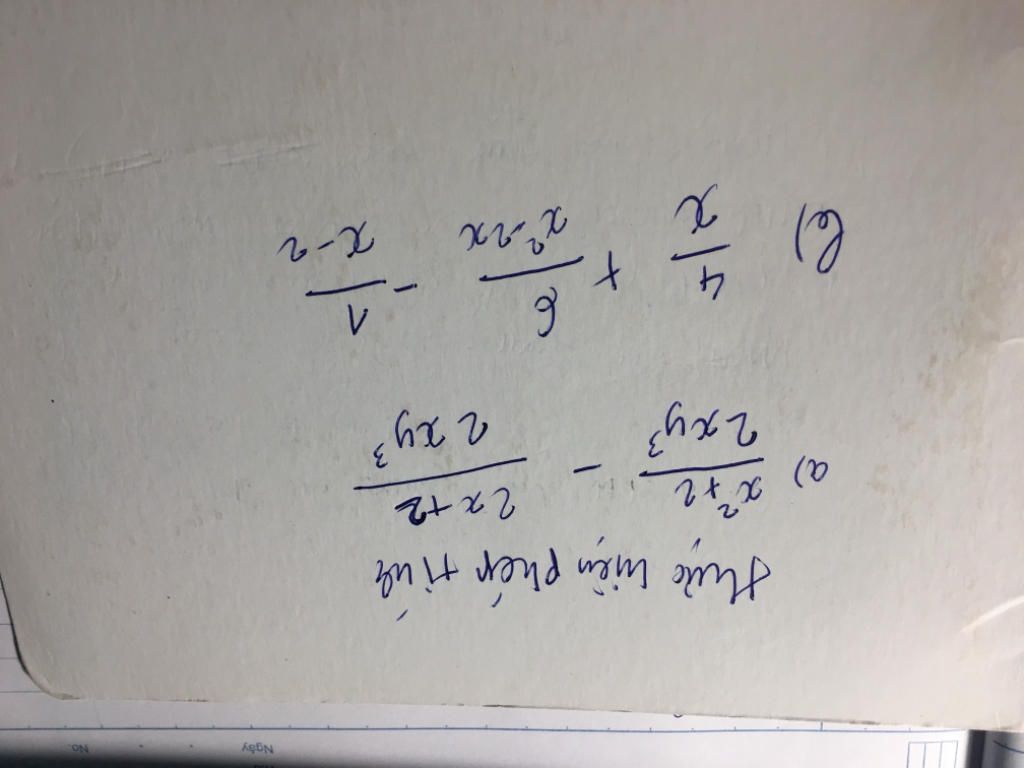 Ngày
No.
thực hiện phép tính
a) \frac{x^2+2}{2xy^3} - \frac{2x+2}{2xy^3}
b) \frac{4}{x} + \frac{6}{x^2-2x} - \frac{1}{x-2}